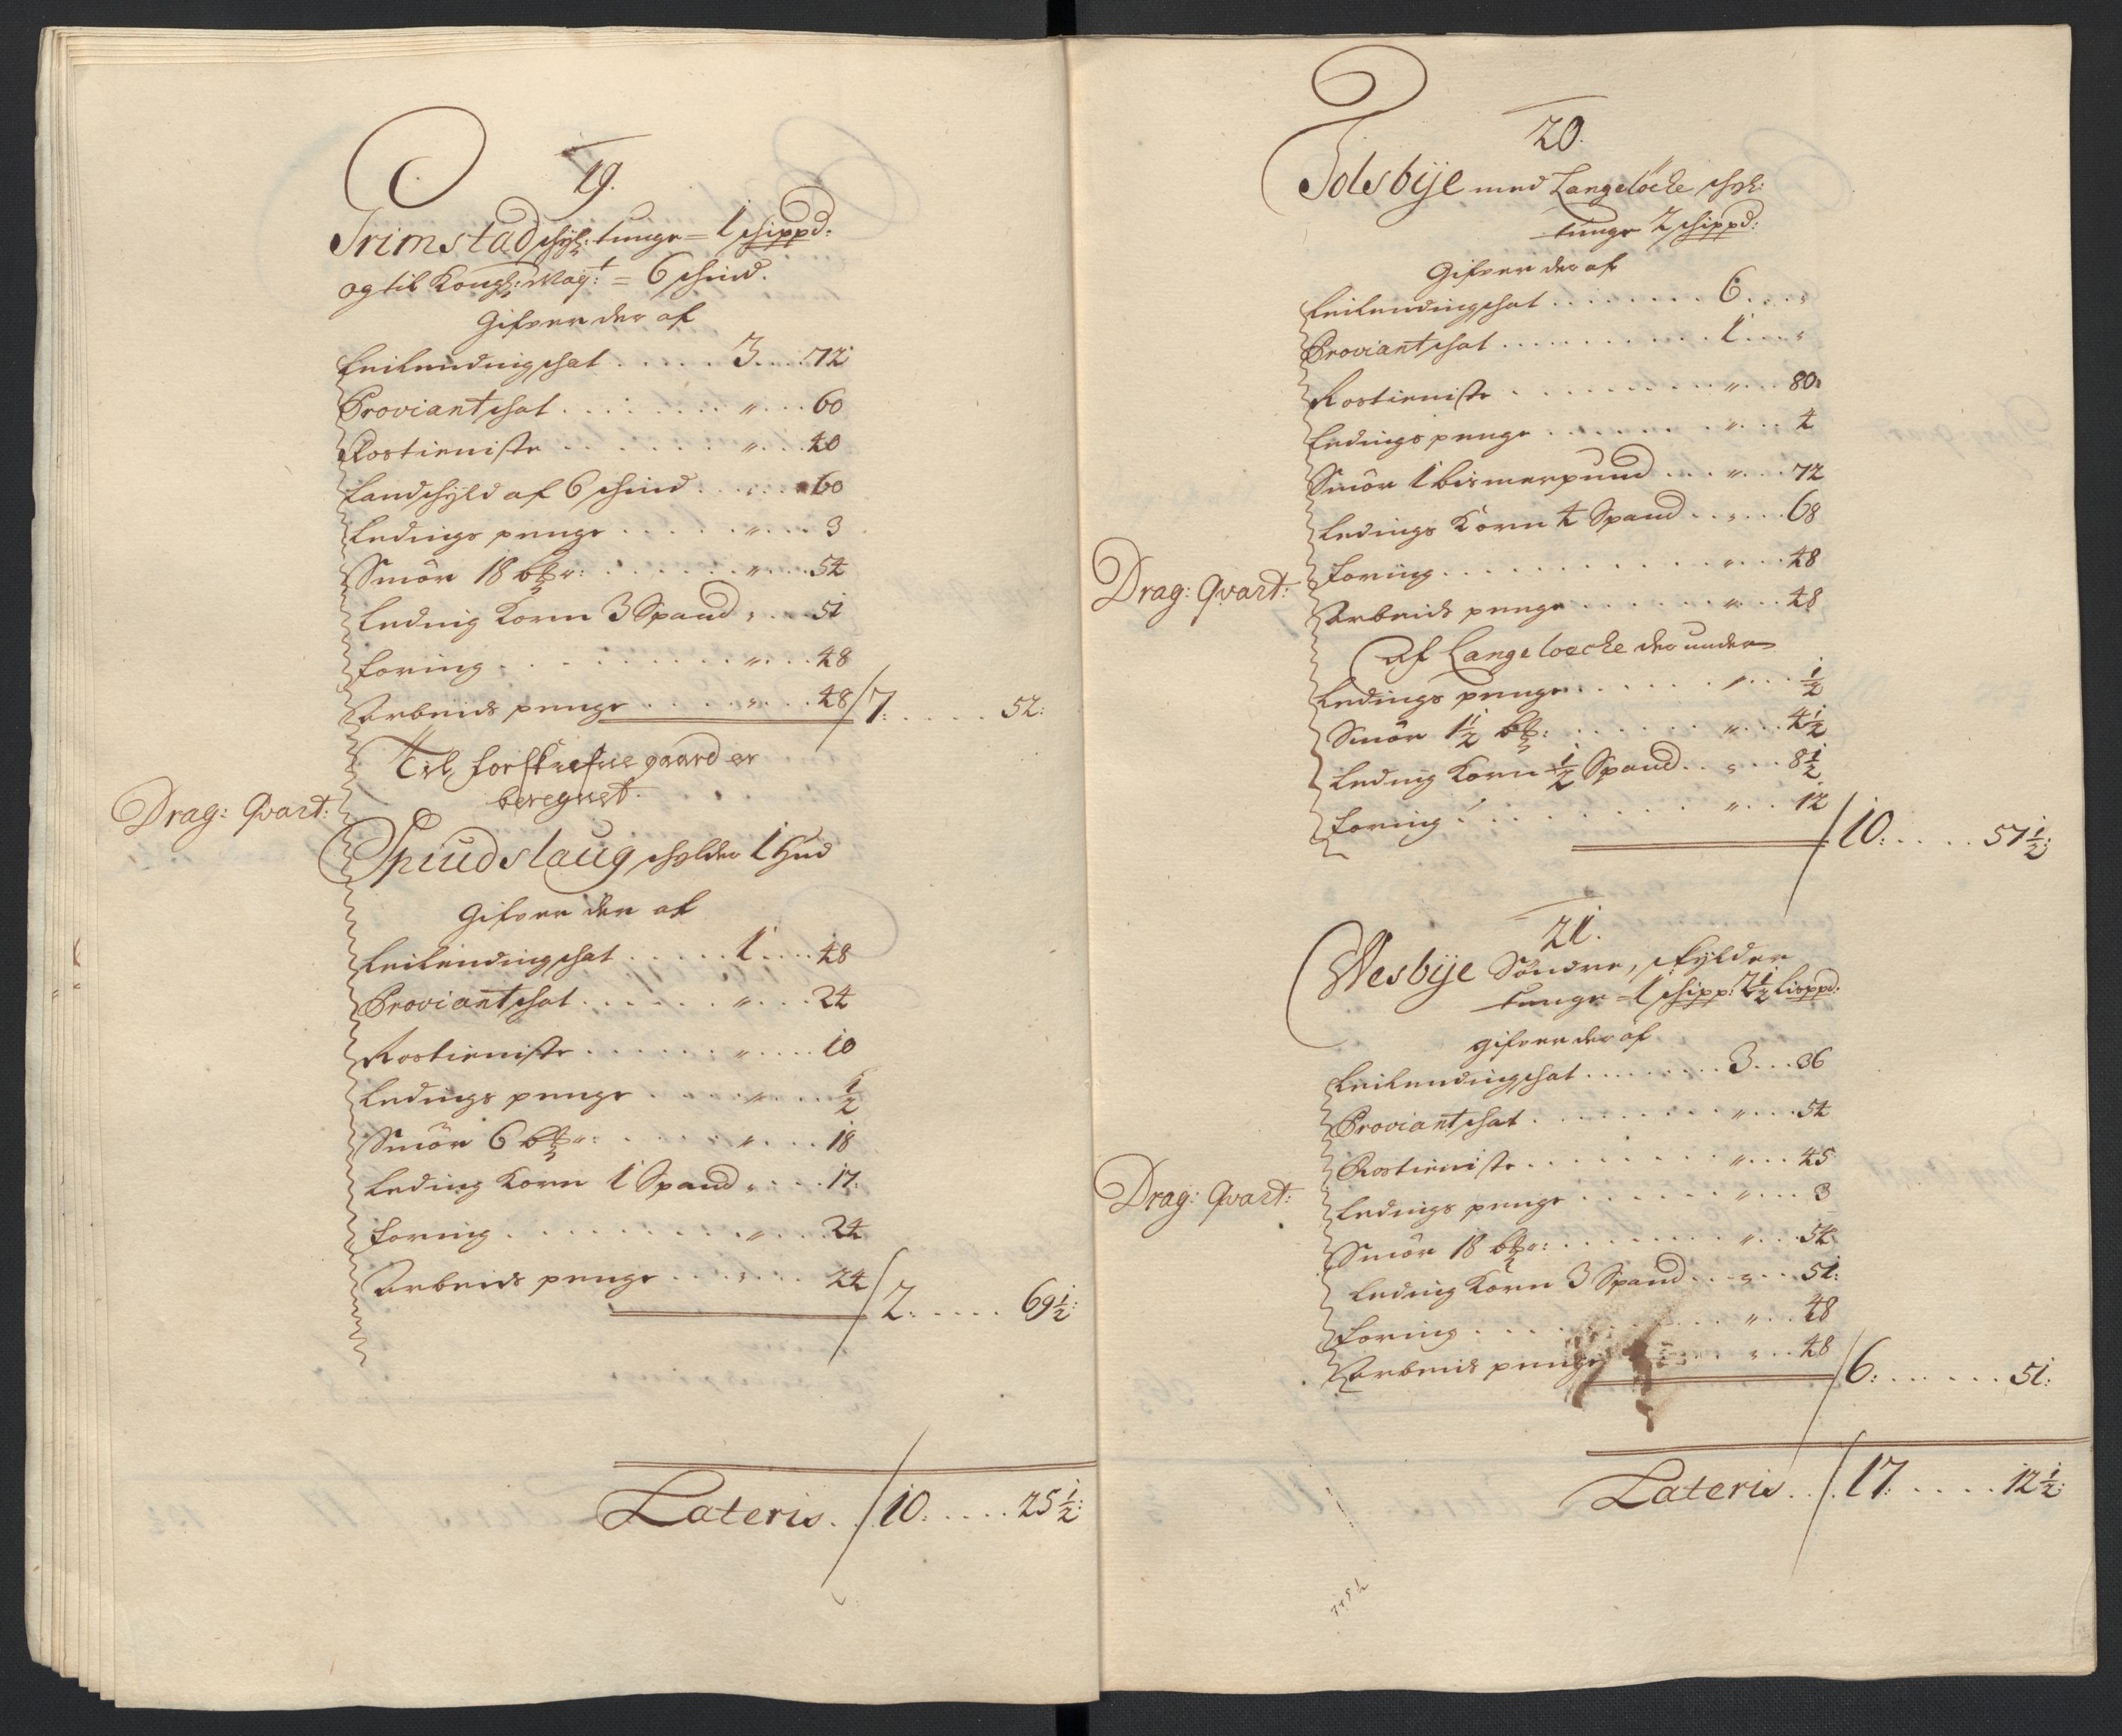 19.
Grimstad schyl: tunge = 1 schippd:
og til Kongl: Mayt: = 6 schind.
Gifver der af
Leilendingschat . . . . . 3 . . . 72
Proviantschat . . . . . . " . . . 60
Rostieniste . . . . . . " . . . 40
Landschyld af 6 schind . . . . 60
Ledings penge . . . . . " . . . 3
Smör 18 b℔r: . . . . . . " . . . 54
Leding Korn 3 Spand " . . . 51
Foring . . . . . . . . " . . . 48
Arbeids penge . . . . " . . . 48 / 7: . . . . . 52:
Til forskrefne gaard er
beregnet.
Drag: Qvart:
Spuudslaug schylder 1 Hud
Gifver der af
Leilendingschat . . . . . 1 . . . 48
Proviantschat . . . . . . " . . . 24
Rostieniste . . . . . . " . . . 10
Ledings penge . . . . . " . . . ½
Smör 6 b℔r: . . . . . " . . . 18
Leding Korn 1 Spand " . . . 17:
Foring . . . . . . . . " . . . 24
Arbeids penge . . . " . . . 24 / 2: . . . . . 69½:
Lateris . / 10: . . . . . 25½:
20.
Idesbije med Langelöche schyl:
tunge 2 schippd:
Gifver der af
Leilendingschat . . . . . . . . 6 . . . "
Proviantschat . . . . . . . . . 1 . . . "
Rostieniste . . . . . . . . . " . . . 80:
Ledings penge . . . . . . . " . . . 4
Smör 1 bismerpund . . . " . . . 72
Ledings Korn 4 Spand . . " . . . 68
Drag: Qvart:
Foring . . . . . . . . . . " . . . 48
Arbeids penge . . . . . . " . . . 48
Af Langeloeche der under
Ledings penge . . . . . . " . . . ½
Smör 1½ b℔: . . . . . . " . . . 4½
Leding Korn ½ Spand . . " . . . 8½
Foring . . . . . . . . . " . . . 12 / 10: . . . . 57½:
21.
Wesbije Söndre, schylder
tunge = 1 schipp: 2½ Lisppd:
gifver der af
Leilendingschat . . . . . . . . 3 . . . 36
Proviantschat . . . . . . . . " . . . 54
Rostieniste . . . . . . . . " . . . 45
Drag: Qvart:
Ledings penge . . . . . . " . . . 3
Smör 18 b℔r: . . . . . . . " . . . 54
Leding Korn 3 Spand . . . " . . . 51:
Foring . . . . . . . . . " . . . 48
Arbeids penge . . . . " . . . 48 / 6: . . . . . . 51:
Lateris . . / 17: . . . . . 12½: